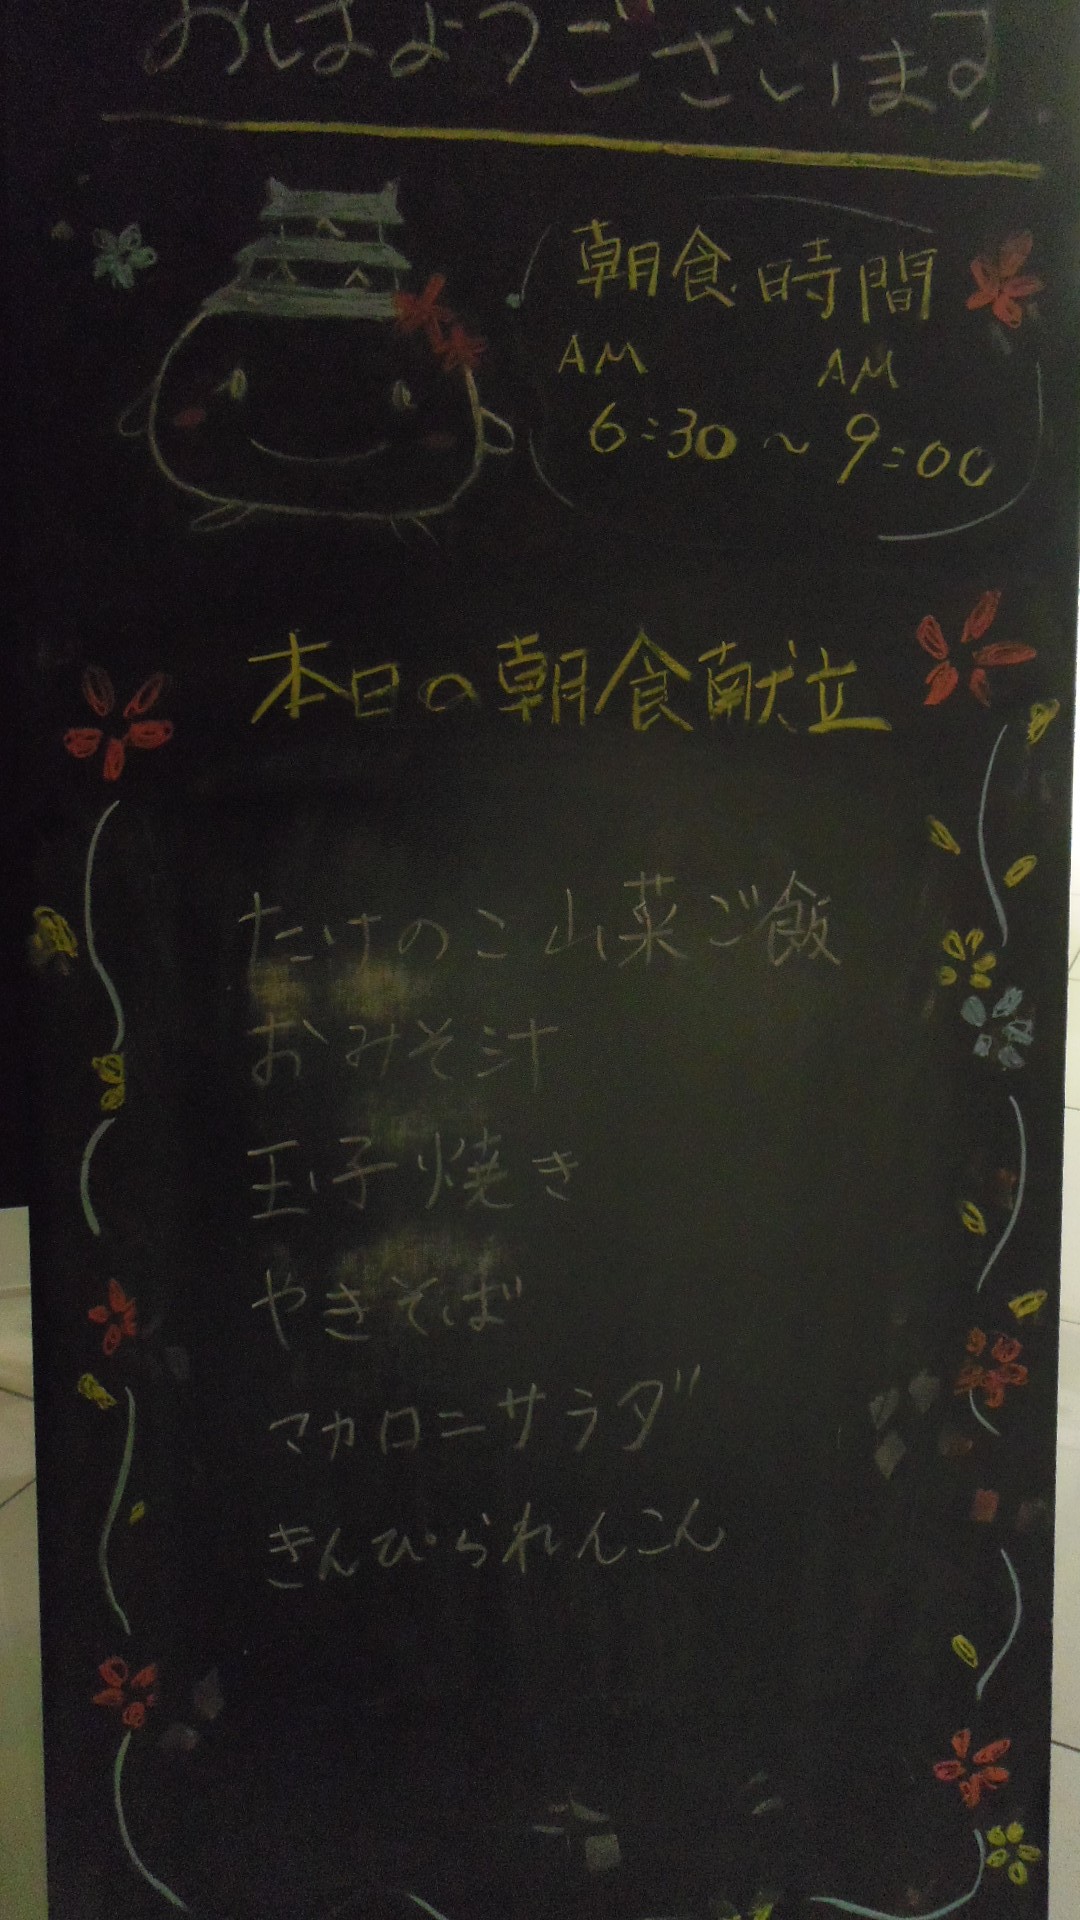 おはようございます
朝食時間
AM AM
6:30～9:00
本日の朝食献立
たけのこ山菜ご飯
おみそ汁
玉子焼き
やきそば
マカロニサラダ
きんぴられんこん